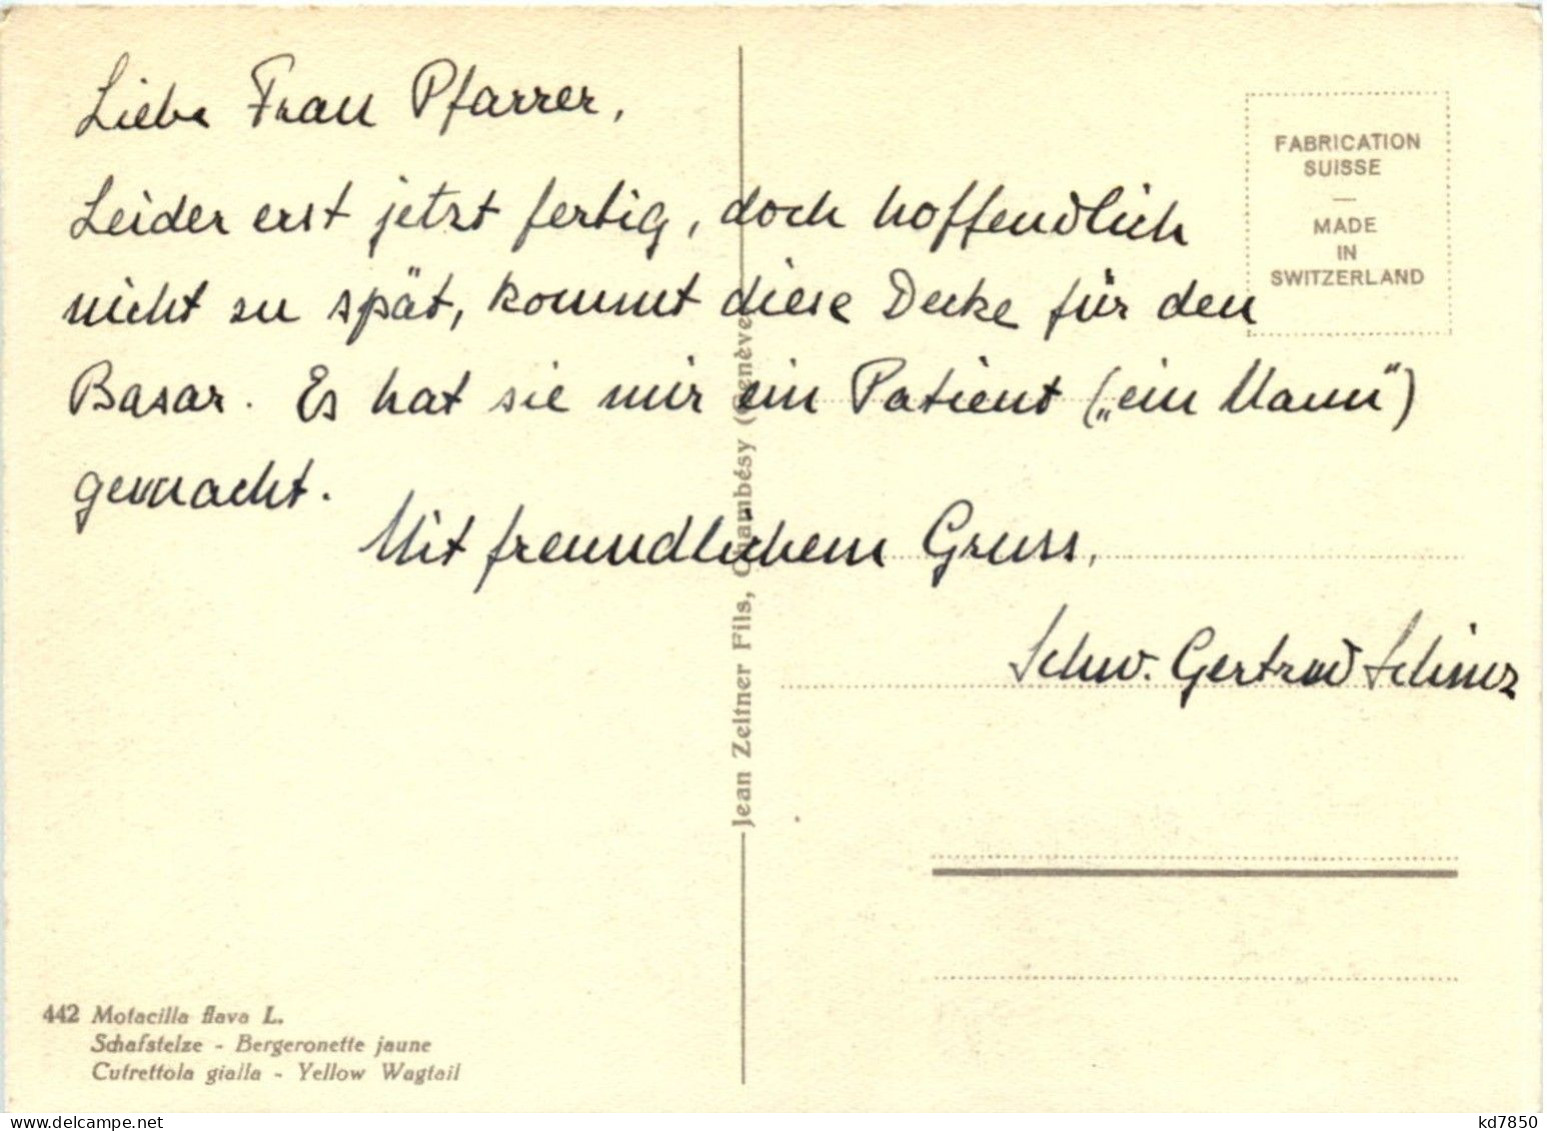 Liebe Frau Pfarrer,
Leider erst jetzt fertig, doch hoffendlich
nicht zu spät, kommt diese Decke für den
Basar. Es hat sie mir ein Patient („ein Mann")
gemacht.
Mit freundlichem Gruss,
Schw. Gertrud Schinz
FABRICATION
SUISSE
—
MADE
IN
SWITZERLAND
Jean Zeltner Fils, Chambésy (Genève)
442 Motacilla flava L.
Schafstelze - Bergeronette jaune
Cutrettola gialla - Yellow Wagtail
www.delcampe.net
kd7850